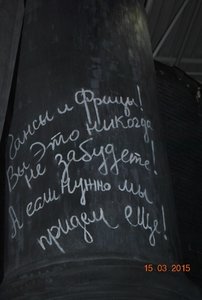 Гансы и Фрицы!
Вы Это никогда
не забудете!
А если нужно мы
придем еще!
15.03.2015